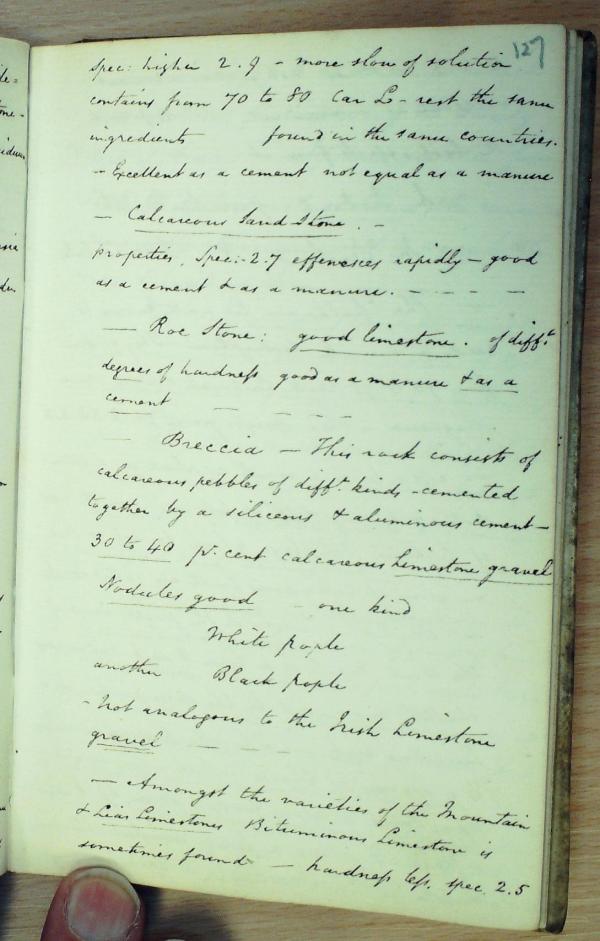 127
spec: higher 2.9 - more slow of solution
contains from 70 to 80 Car L - rest the same
ingredients found in the same countries.
- Excellent as a cement not equal as a manure
- Calcareous Sand Stone. -
properties. Spec:- 2.7 effervesces rapidly - good
as a cement & as a manure. - - - -
- Roe Stone: good limestone. of difft.
degrees of hardness good as a manure & as a
cement - - - -
- Breccia - This rock consists of
calcareous pebbles of difft. kinds - cemented
together by a siliceous & aluminous cement -
30 to 40 pr. cent calcareous Limestone gravel
Nodules good - one kind
White
another Black
- Not analogous to the Irish Limestone
gravel - - -
- Amongst the varieties of the Mountain
& Lias Limestones Bituminous Limestone is
sometimes found - hardness less. spec. 2.5